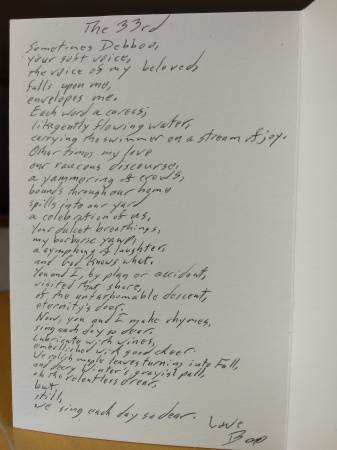 The 33rd
Sometimes Debboo,
your soft voice,
the voice of my beloved,
falls upon me,
envelopes me.
Each word a caress;
litagently flowing water,
carrying the swimmer on a stream of joy.
Other times my love
our raucous discourse,
a yammering of crowds,
bounds through our home
spills into our yard
a celebration of us,
Your dulcet breathings,
my barbaric yawp,
a symphony of laughter,
and God knows what.
You and I, by plan or accident,
visited that shore,
of the unfathomable descent,
eternity's door.
Now, you and I make rhymes,
sing each day so dear.
Lubricate with wines,
embellished with good cheer.
We relish maple leaves turning into Fall,
and decry Winter's grayish pall,
oh the relentless drear,
but
still,
we sing each day so dear.
Love